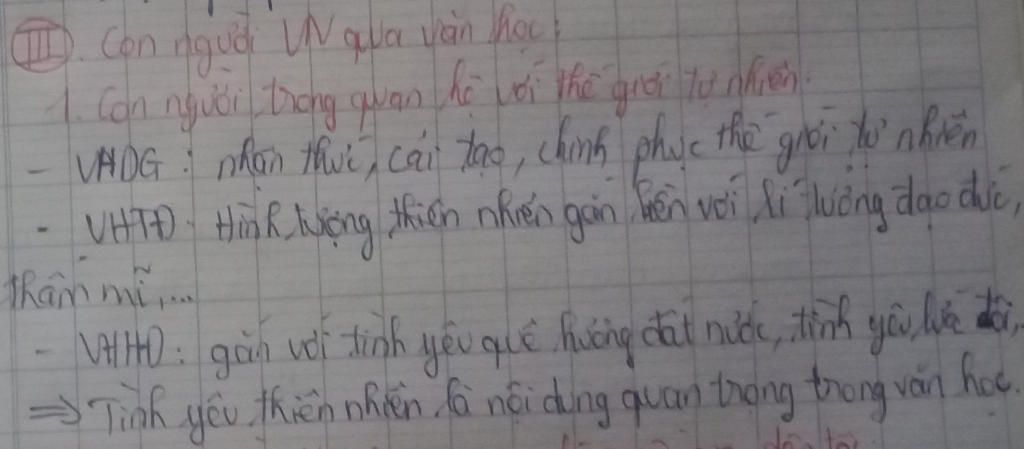 III. Con người VN qua văn học:
1. Con người trong quan hệ với thế giới tự nhiên.
- VHDG: nhận thức, cải tạo, chinh phục thế giới tự nhiên
- VHTĐ: Hình tượng thiên nhiên gắn liền với lí tưởng đạo đức,
thẩm mĩ,...
- VHHĐ: gắn với tình yêu quê hương đất nước, tình yêu lứa đôi,
⇒ Tình yêu thiên nhiên là nội dung quan trọng trong văn học.